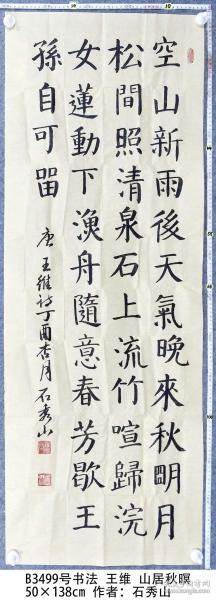 空山新雨後天氣晚來秋明月
松間照清泉石上流竹喧歸浣
女蓮動下漁舟隨意春芳歇王
孫自可留
唐王維詩丁酉杏月石秀山
B3499号书法 王维 山居秋暝
50×138cm 作者：石秀山